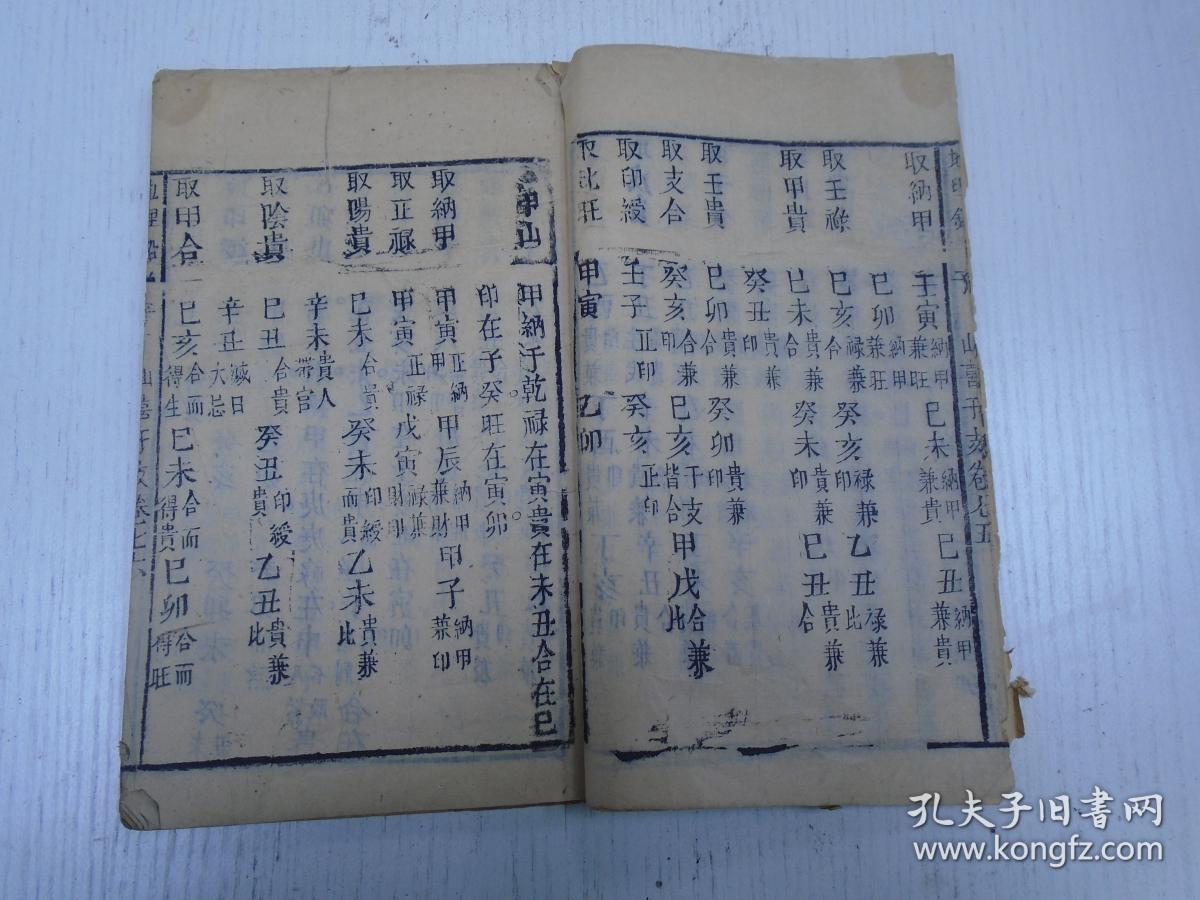 取納甲　壬寅納甲兼旺　己未納甲兼貴　己丑納甲兼貴
己卯納甲兼旺
取壬祿　己亥祿兼合　癸亥祿兼印　乙丑祿兼比
取甲貴　己未貴兼合　癸未貴兼印　己丑貴兼合
癸丑貴兼印
取壬貴　己卯貴兼合　癸卯貴兼印
取支合　癸亥合兼印　己亥干支皆合　甲戌合兼比
取印綬　壬子正印　癸亥正印
取比旺　甲寅　乙卯
甲山　甲納于乾祿在寅貴在未丑合在巳
印在子癸旺在寅卯
取納甲　甲寅正納甲　甲辰納甲兼財　甲子納甲兼印
取正祿　甲寅正祿　戊寅祿兼財
取陽貴　己未合貴　癸未印綬而貴　乙未貴兼比
辛未貴人帶官
取陰貴　己丑合貴　癸丑印綬貴　乙丑貴兼比
辛丑滅日大忌
取甲合　己亥合而得生　己未合而得貴　己卯合而得旺
孔夫子旧书网
www.kongfz.com